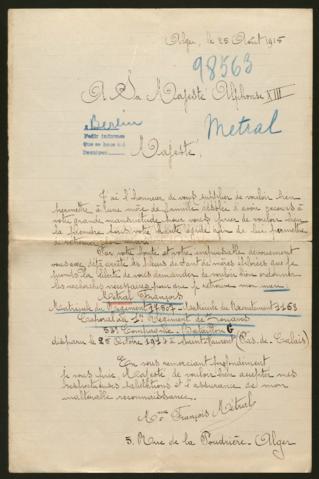 Alger, le 25 Août 1915
98563
A Sa Majesté Alphonse XIII
Berlin
Pedir informes
Metral
Majesté,
J'ai l'honneur de vous supplier de vouloir bien
permettre à une mère de famille désolée d'avoir recours à
votre grande mansuétude pour vous prier de vouloir bien
la prendre sous votre haute égide afin de lui permettre
de retrouver son mari.
Par votre bonté et votre inépuisable dévouement
vous avez déjà arrêté les pleurs de tant de mères éplorées que je
prends la liberté de vous demander de vouloir bien ordonner
les recherches nécessaires pour que je retrouve mon mari
Métral François
Matricule du Régiment 17807 - Matricule de Recrutement 3163
Caporal au 1er Régiment de Zouaves
33e Compagnie - Bataillon G
disparu le 25 Octobre 1914 à (Pas de Calais)
En vous remerciant profondément
je vous prie, Majesté de vouloir bien accepter mes
respectueuses salutations et l'assurance de mon
inaltérable reconnaissance.
Mme François Métral
5, Rue de la Poudrière - Alger